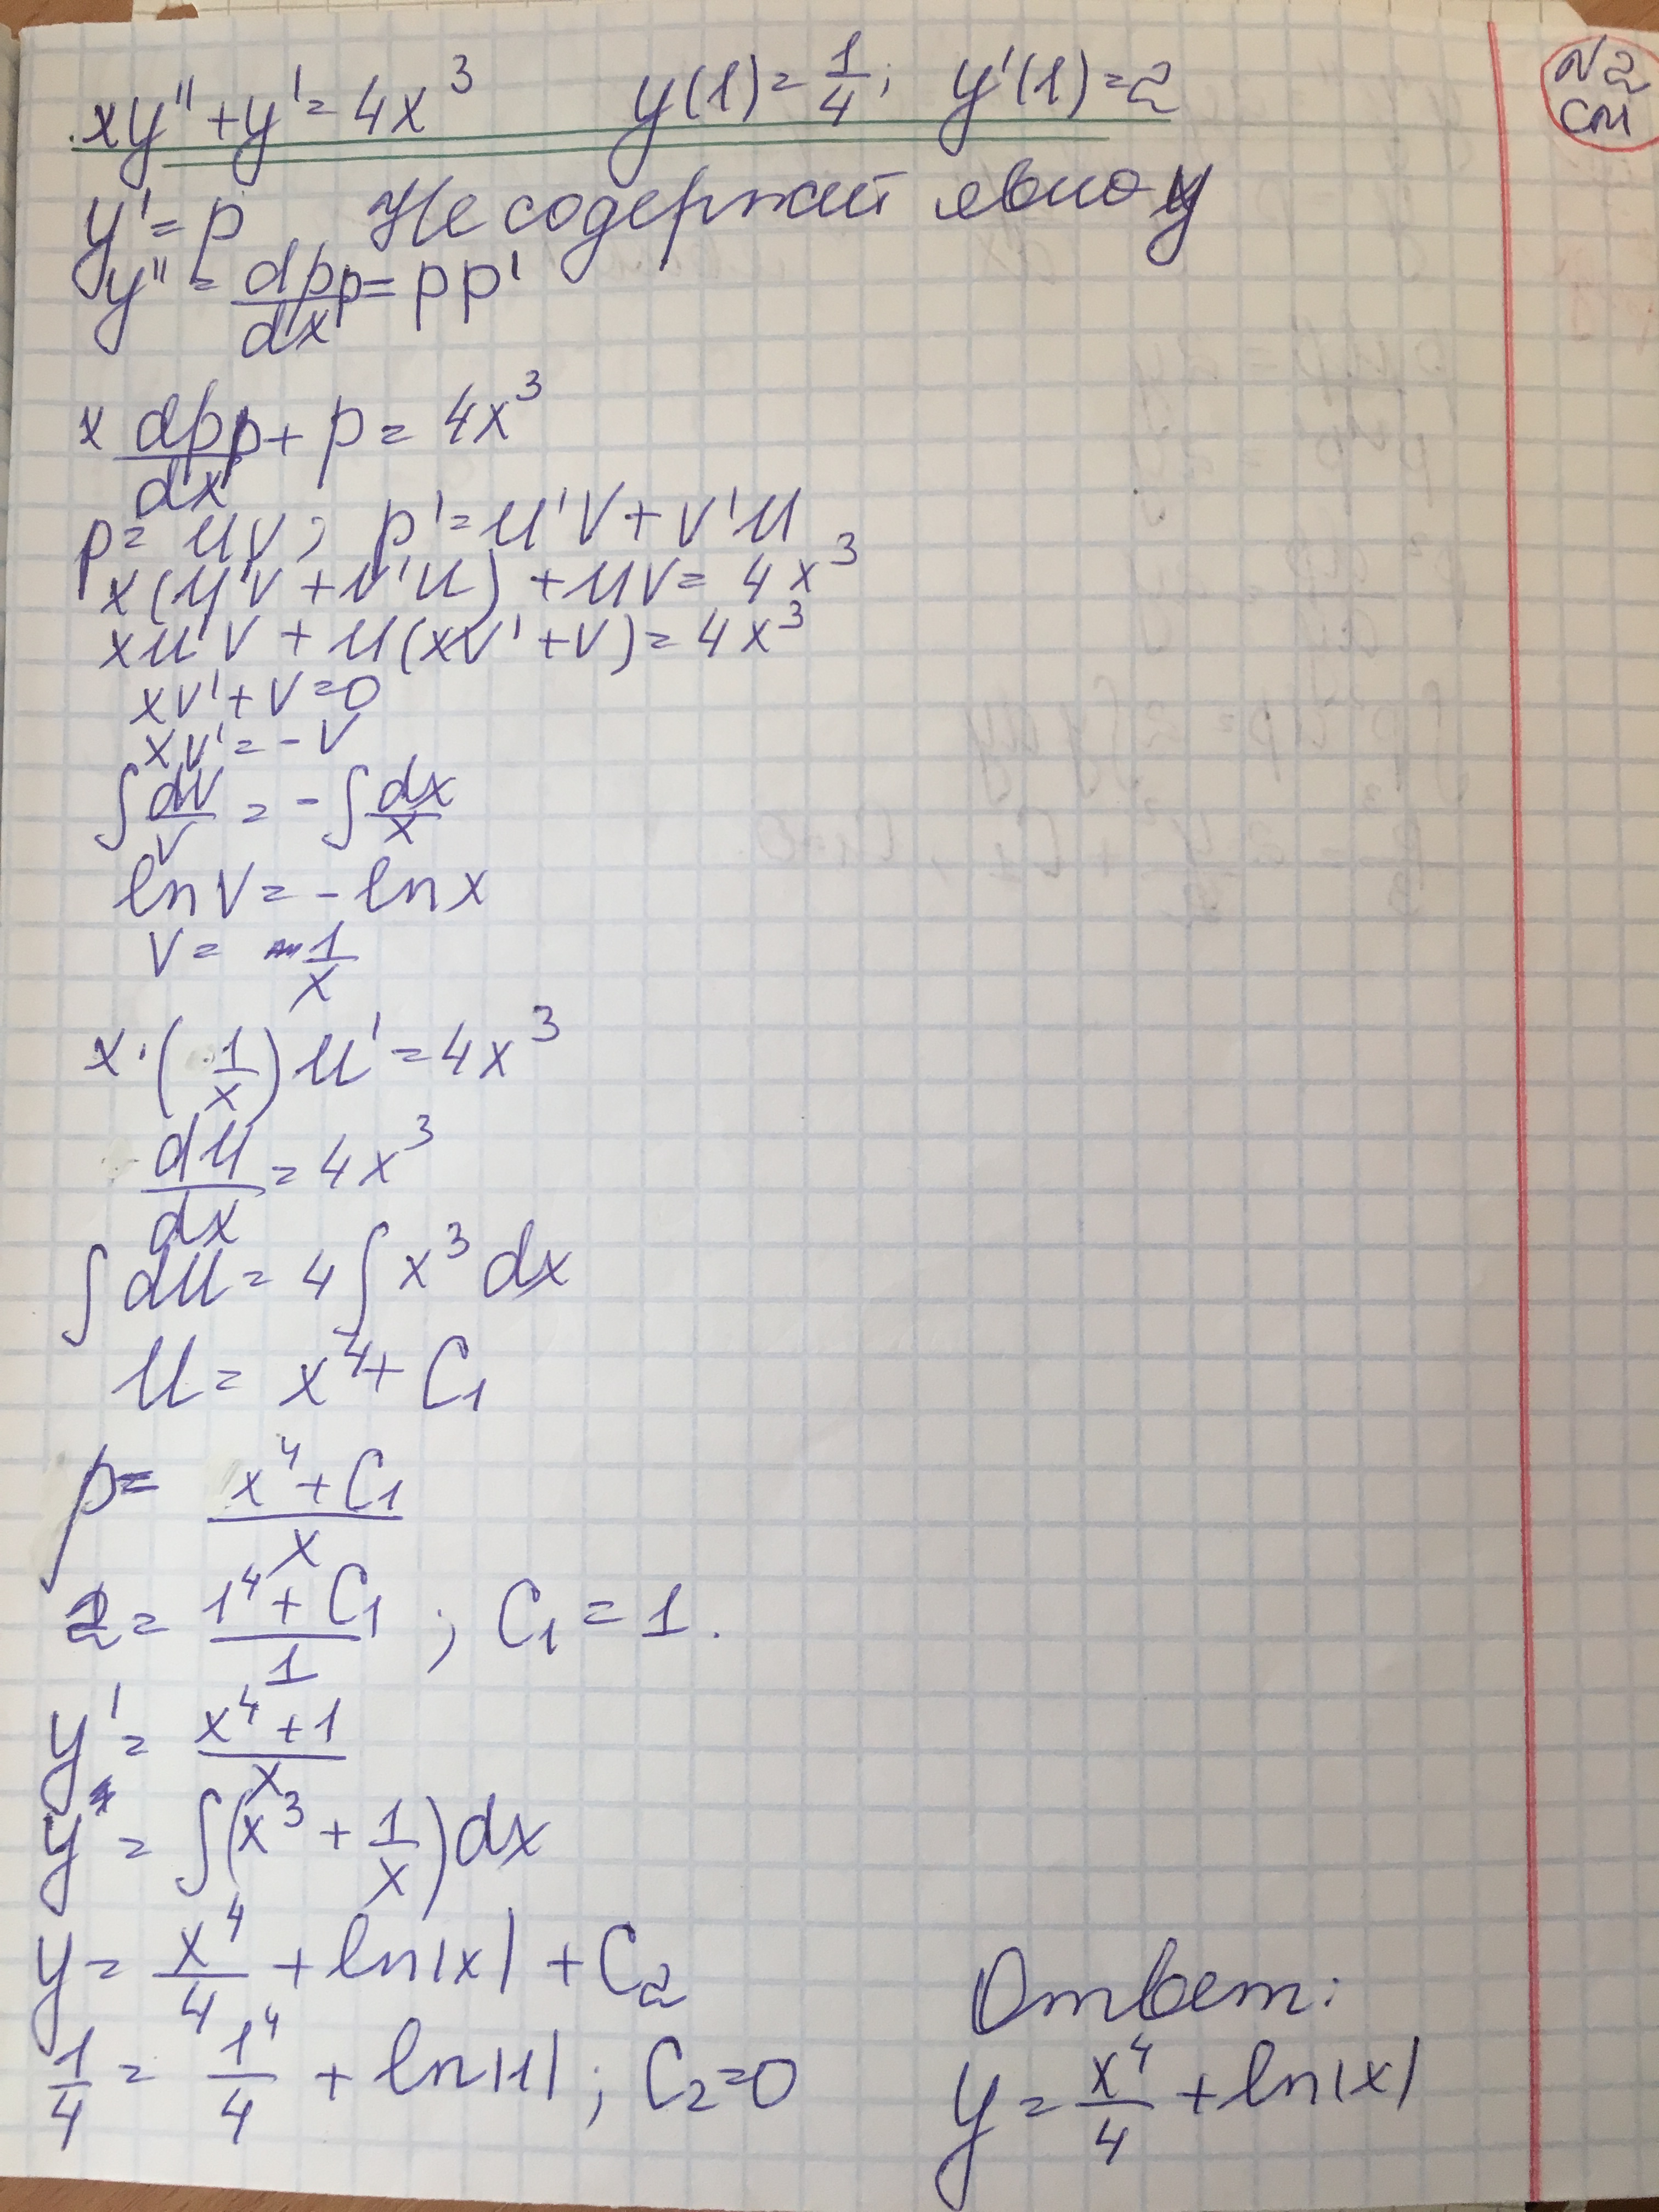 xy'' + y' = 4x³ y(1) = 1/4; y'(1) = 2
N2 см
y' = p Не содержит явно y
y'' = dp/dx p = pp'
x dp/dx p + p = 4x³
p = uv; p' = u'v + v'u
x(u'v + v'u) + uv = 4x³
xu'v + u(xv' + v) = 4x³
xv' + v = 0
xv' = -v
∫ dv/v = -∫ dx/x
ln v = -ln x
v = 1/x
x · (1/x) u' = 4x³
du/dx = 4x³
∫ du = 4 ∫ x³ dx
u = x⁴ + C₁
p = (x⁴ + C₁)/x
2 = (1⁴ + C₁)/1 ; C₁ = 1.
y' = (x⁴ + 1)/x
y = ∫(x³ + 1/x) dx
y = x⁴/4 + ln|x| + C₂
1/4 = 1⁴/4 + ln|1| ; C₂ = 0
Ответ:
y = x⁴/4 + ln|x|